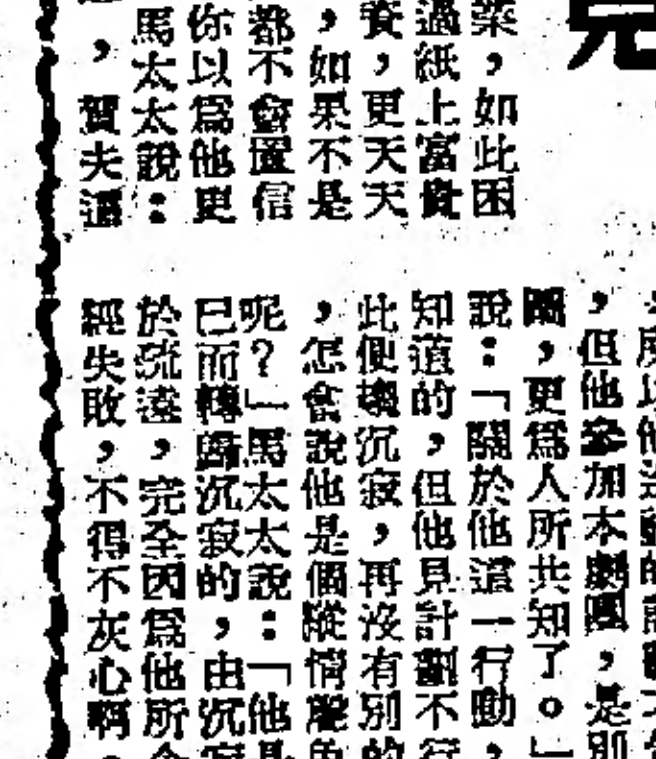 ,如此困
過紙上富貴
養,更天天
,如果不是
都不會置信
你以爲他更
馬太太說:
,賀夫這
,但他參加本劇團,是別
,更爲人所共知了。」
說:「關於他這一行動,
知道的,但他見計劃不行
此便沉寂,再沒有別的
,怎會說他是個縱情聲色
呢?」馬太太說:「他是
已而轉歸沉寂的,由沉寂
於疏遠,完全因爲他所
經失敗,不得不灰心啊